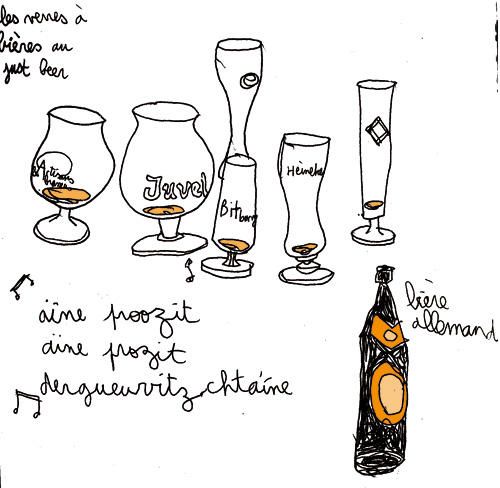 les verres à
bières au
just beer
Artisans
Juvel
Bit
burg
Heineke
bière
allemand
äine proozit
äine prozit
dergueurvitz chtäine